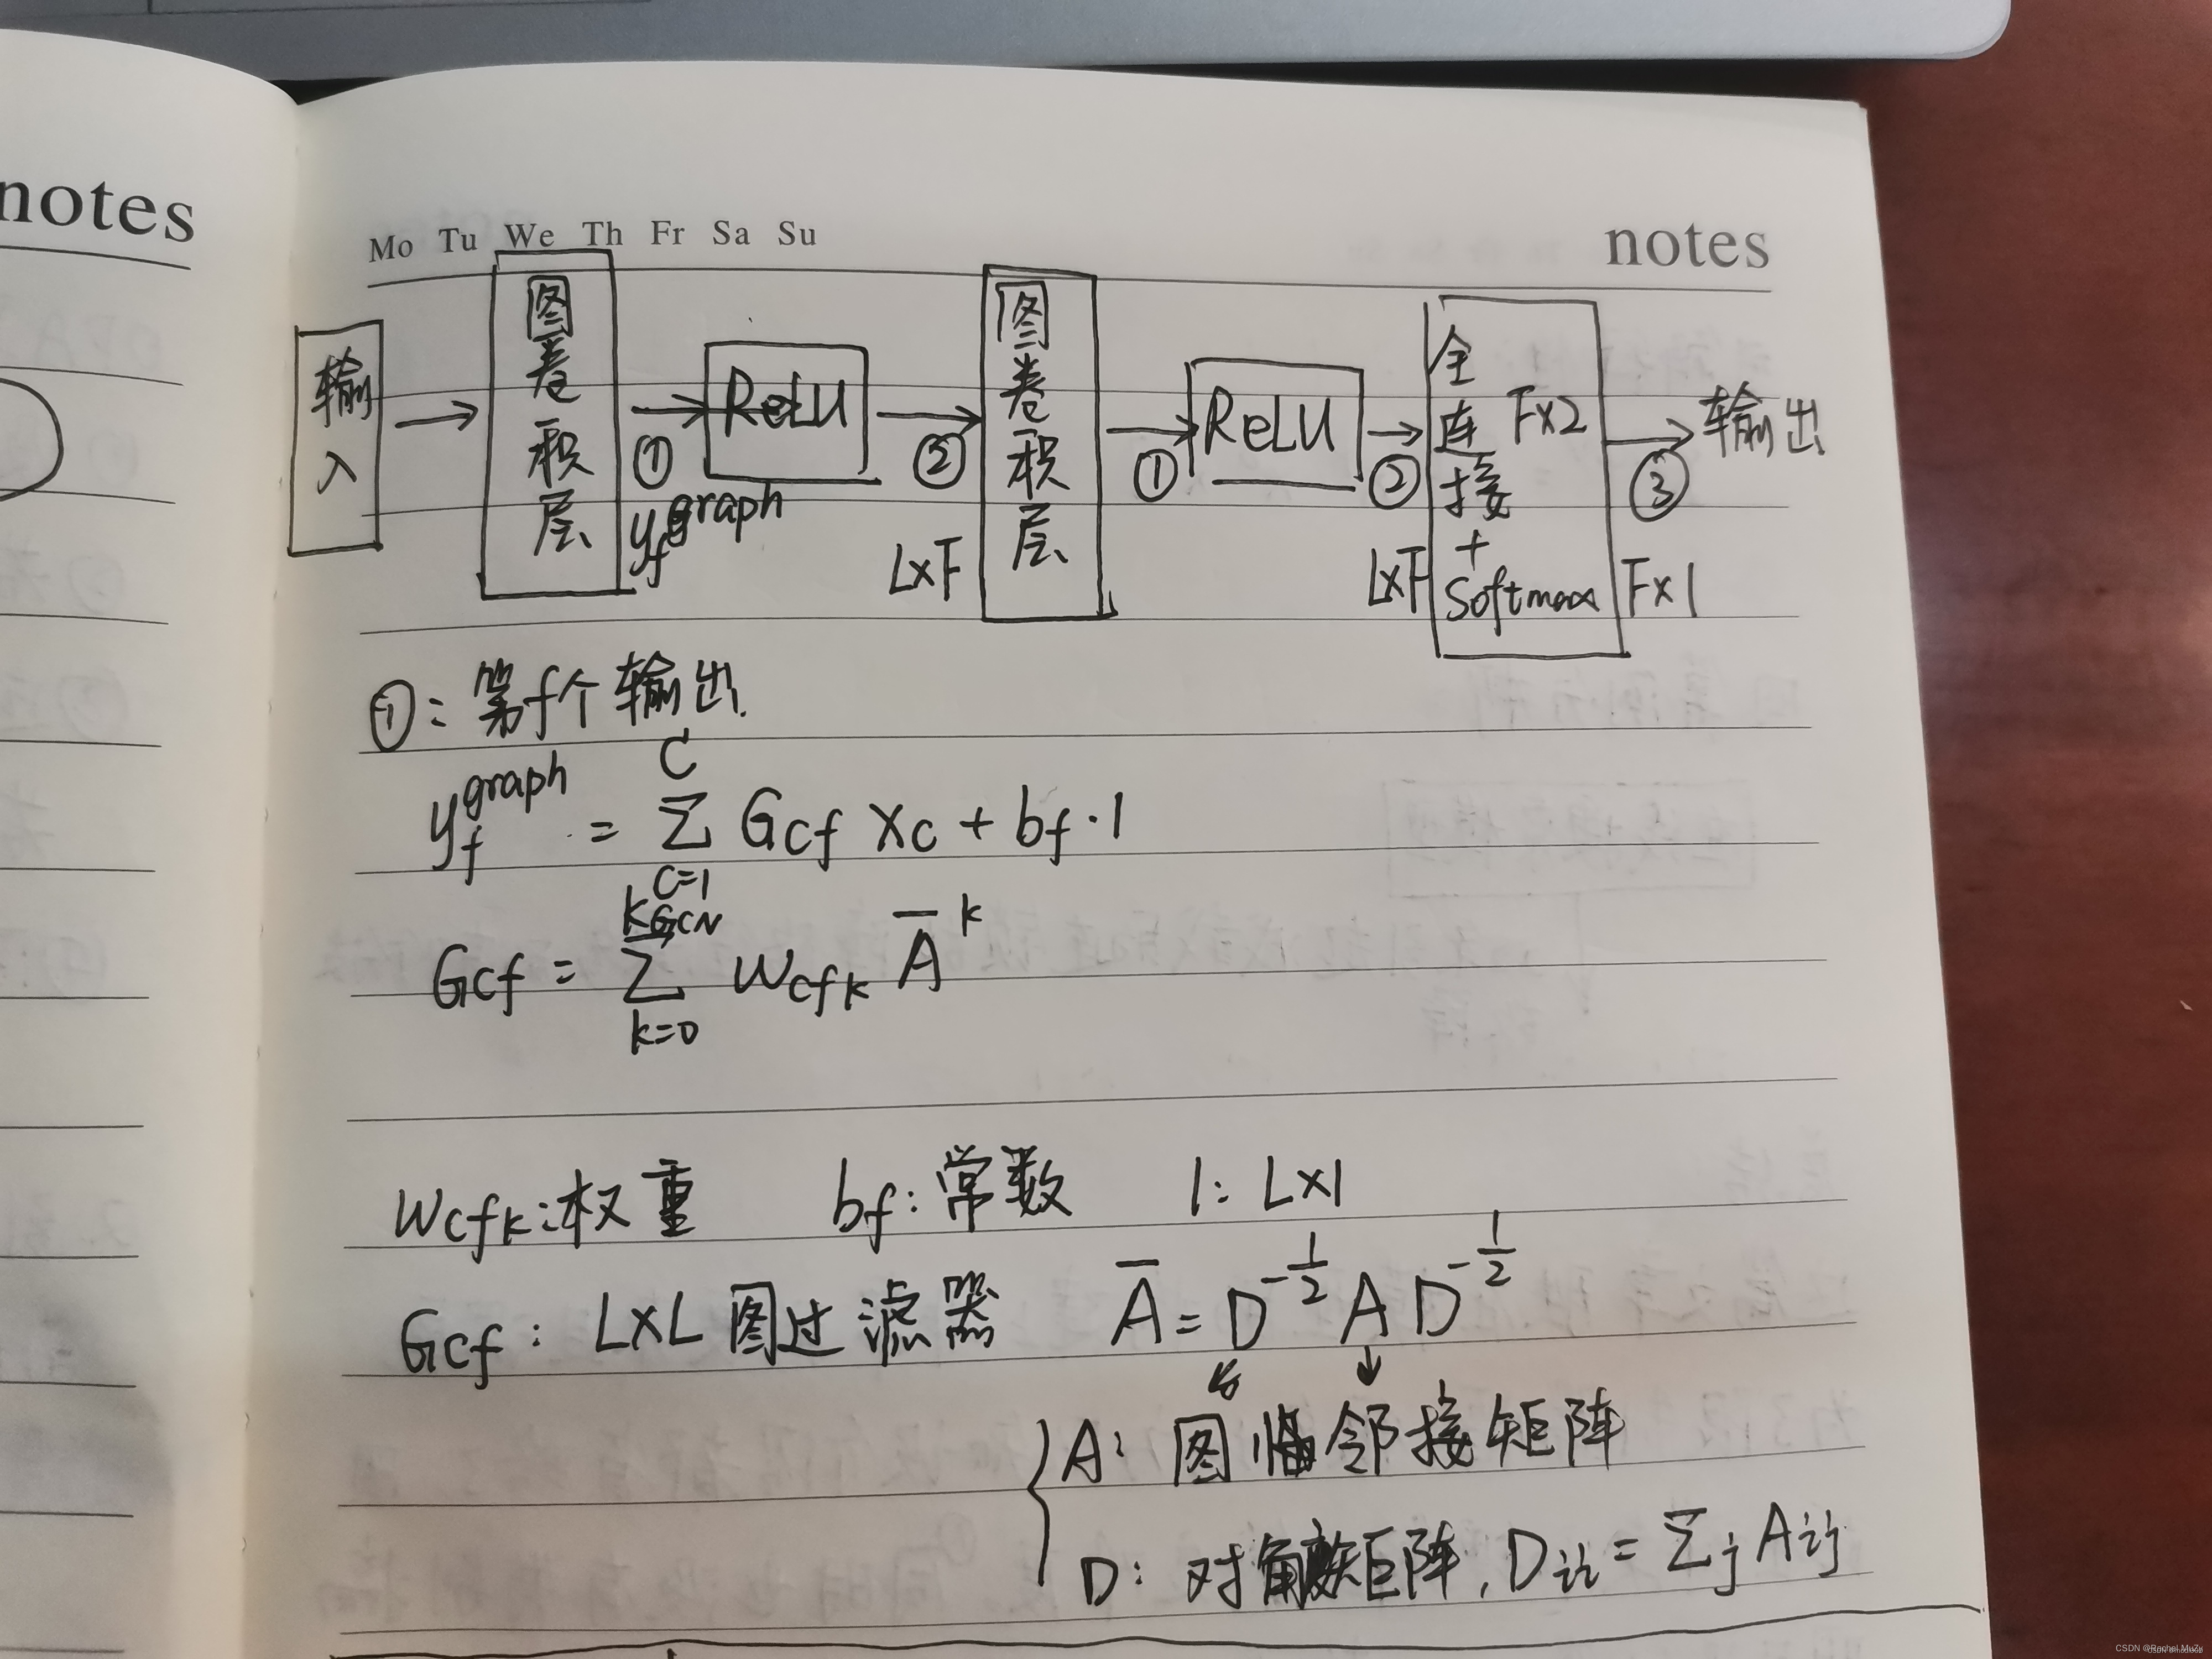 notes
Mo Tu We Th Fr Sa Su
notes
输入
图卷积层
① y_f^graph
ReLU
② L×F
图卷积层
①
ReLU
② L×F
全连接+Softmax F×2
③ F×1
输出
①: 第f个输出.
y_f^graph = Σ_{c=1}^{C} G_cf X_c + b_f·1
G_cf = Σ_{k=0}^{K_GCN} W_cfk A̅^k
W_cfk: 权重 b_f: 常数 1: L×1
G_cf: L×L 图过滤器 A̅ = D^{-1/2} A D^{-1/2}
A: 图邻接矩阵
D: 对角矩阵, D_ii = Σ_j A_ij
CSDN @Rachel MuZy